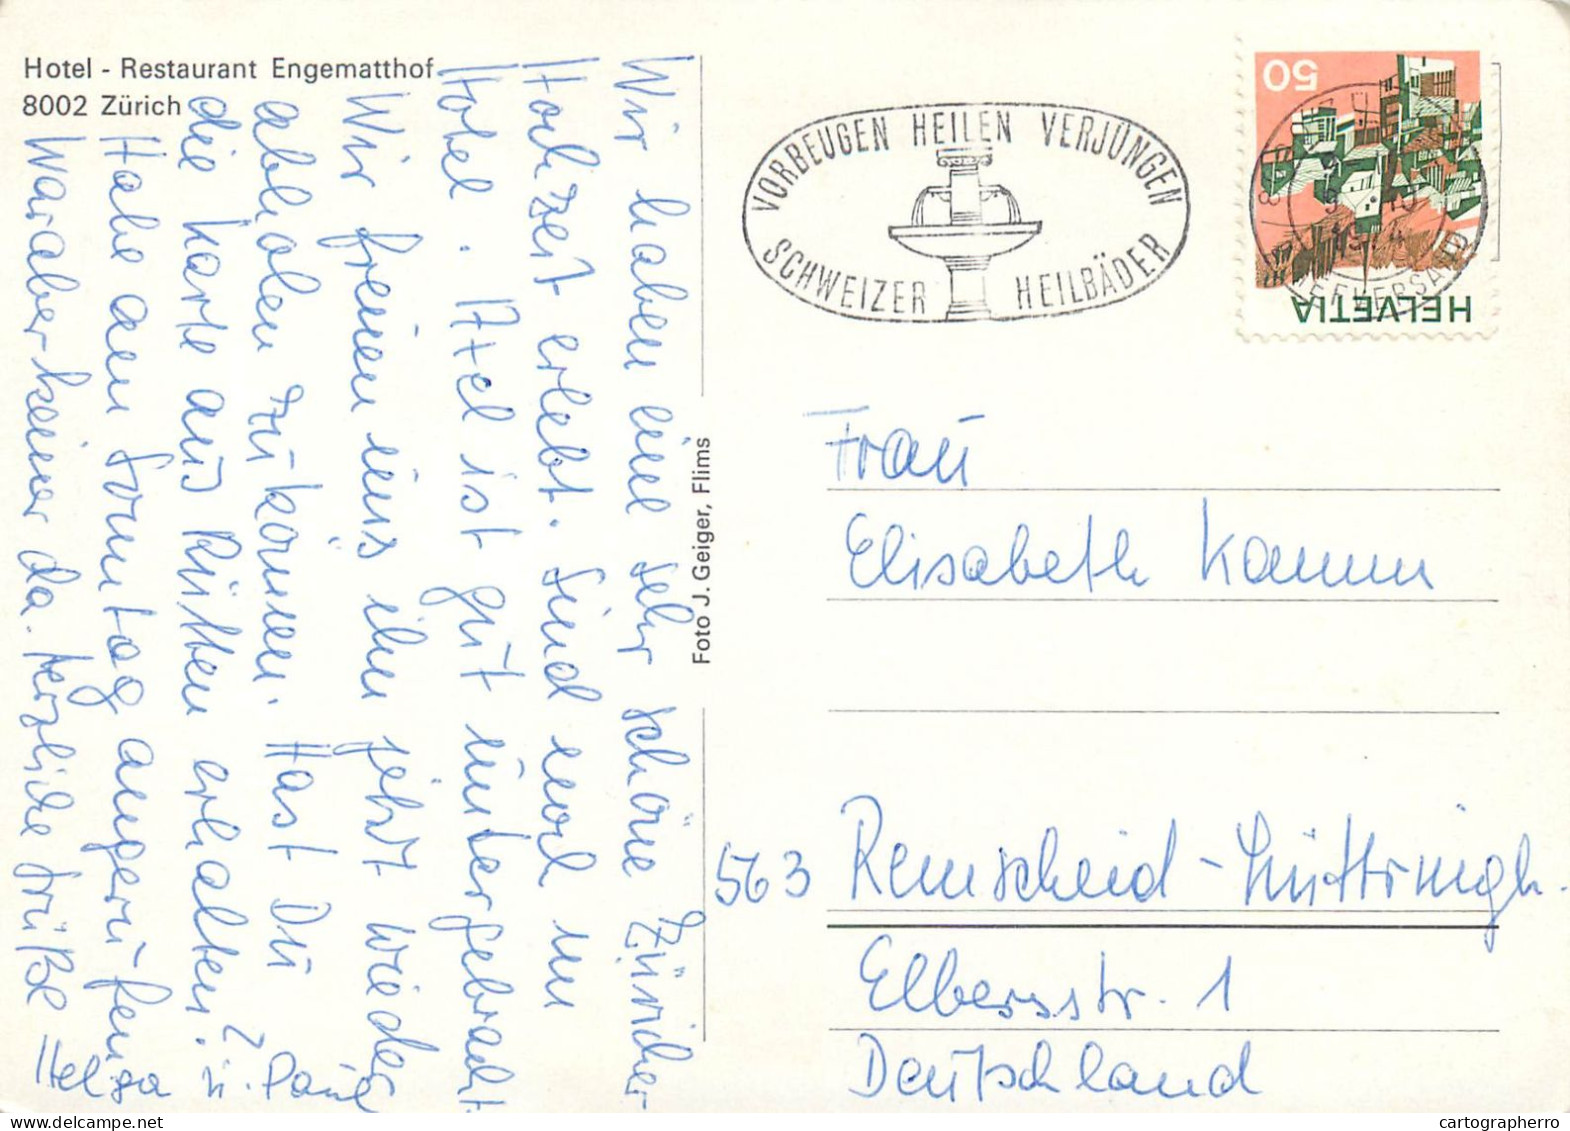 Hotel - Restaurant Engematthof
8002 Zürich
Wir haben eine sehr schöne Züricher-
Hochzeit erlebt. Sind noch im
Hotel. Axel ist gut untergebracht.
Wir freuen uns ihn jetzt wieder
abholen zu können. Hast Du
die Karte aus Rütten erhalten?
Habe am Sonntag angerufen
War aber keiner da. Herzliche Grüße
Helga u. Paul
Foto J. Geiger, Flims
VORBEUGEN HEILEN VERJÜNGEN
SCHWEIZER HEILBÄDER
50
HELVETIA
Frau
Elisabeth Kamm
563 Remscheid - Lüttringh.
Elbersstr. 1
Deutschland
cartographerro